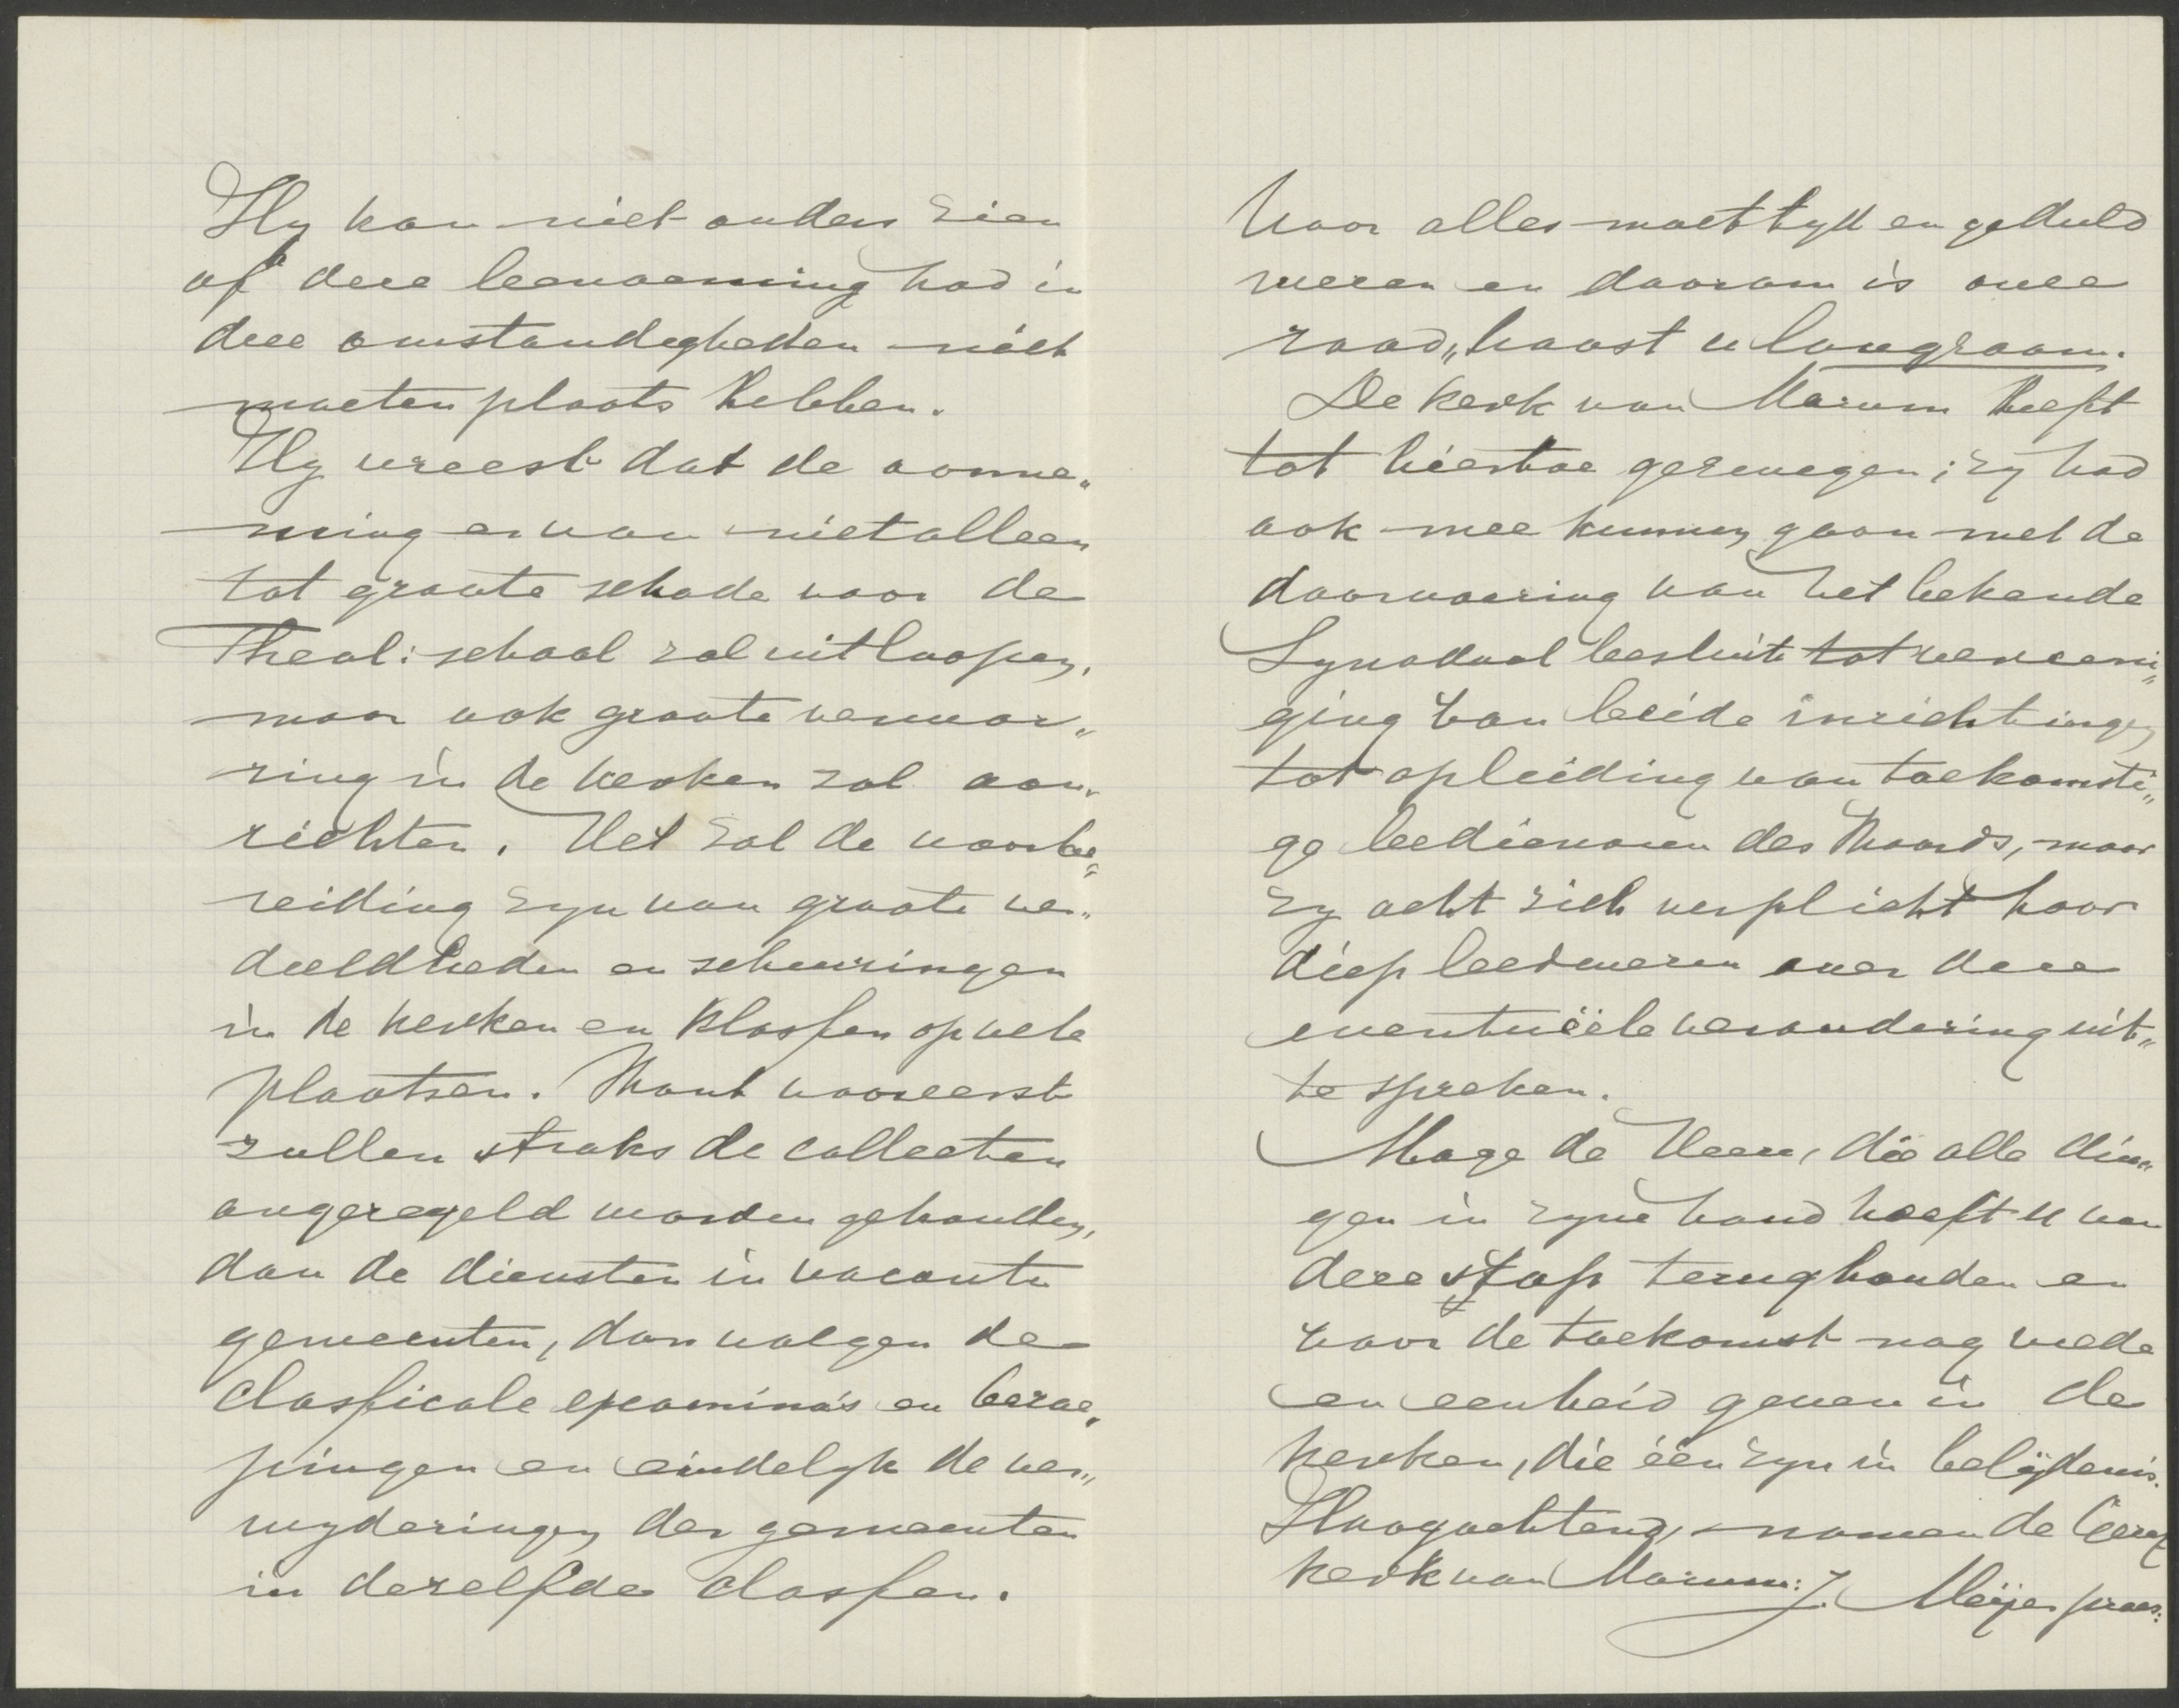 Hy kan niet anders zien
of deze benoeming had in
deze omstandigheden niet
moeten plaats hebben.
Hy vreest dat de aanne„
ming er van niet alleen
tot groote schade voor de
Theol: school zal uitloopen,
maar ook groote verwar„
ring in de kerken zal aan„
richten. Het zal de voorbe„
reiding zyn van groote ver„
deeldheden en scheuringen
in de kerken en Klassen op vele
plaatsen. Want vooreerst
zullen straks de collecten
ongeregeld worden gehouden,
dan de diensten in vacante
gemeenten, dan volgen de
classicale examina's en beroe„
pingen en eindelyk de ver„
wyderingen der gemeenten
in dezelfde classen.
Voor alles moet tyd en geduld
wezen en daarom is onze
raad „haast u langzaam.
De kerk van Marum heeft
tot hiertoe gezwegen; zy had
ook mee kunnen gaan met de
doorvoering van het bekende
Synodaal besluit tot vereeni„
ging van beide inrichtingen
tot opleiding van toekomsti„
ge bedienaren des Woords, maar
zy acht zich verplicht haar
diep leedwezen over deze
eventuëële verandering uit„
te spreken.
Moge de Heere, die alle din„
gen in zyne hand heeft u van
deze stap terughouden en
voor de toekomst nog vrede
en eenheid geven in de
kerken, die één zyn in belijdenis.
Hoogachtend, namen de Geref
kerk van Marum: J. Meijer praes: